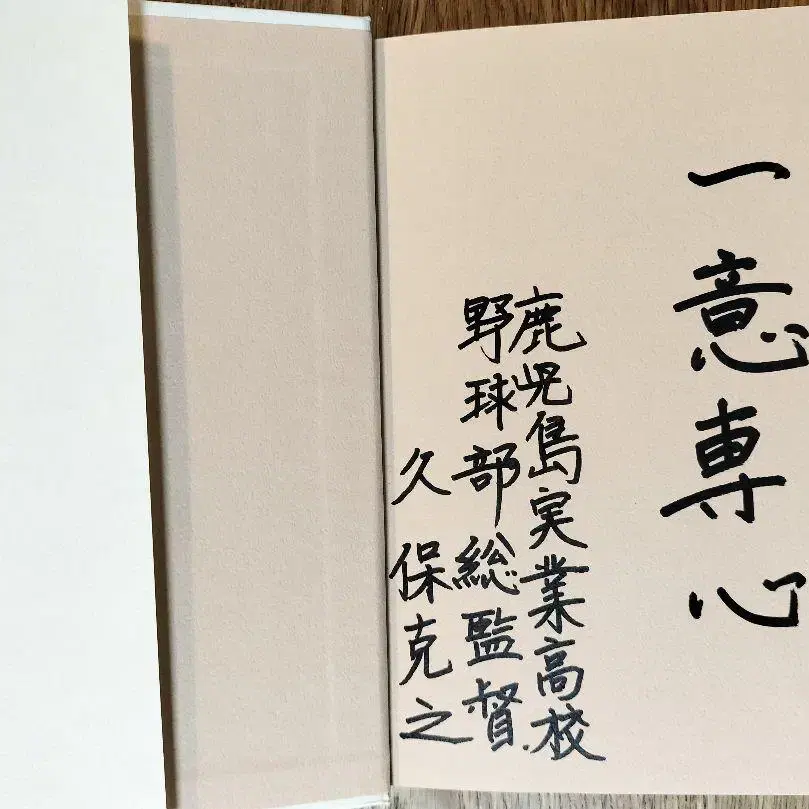 一意専心
鹿児島実業高校
野球部総監督
久保克之